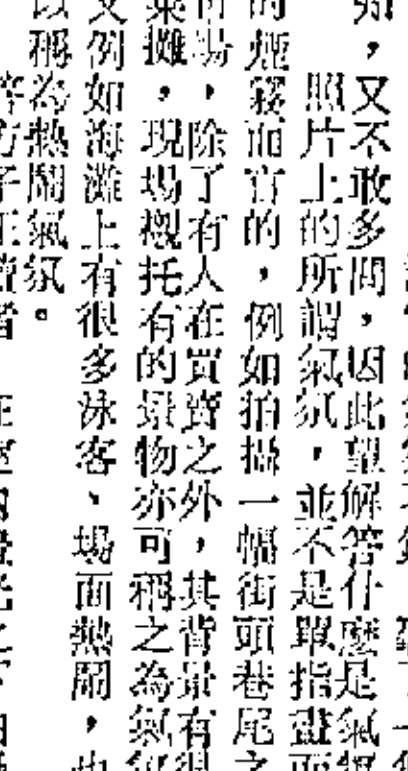 ，又不敢多問，因此望解答什麼是氣
照片上的所謂氣氛，並不是單指畫面
的煙霧而言的，例如拍攝一幅街頭巷尾之
市場，除了有人在買賣之外，其背景有很
菜攤，現場襯托有的景物亦可稱之為氣氛
文例如海灘上有很多泳客、場面熱鬧，也
以稱為熱鬧氣氛。